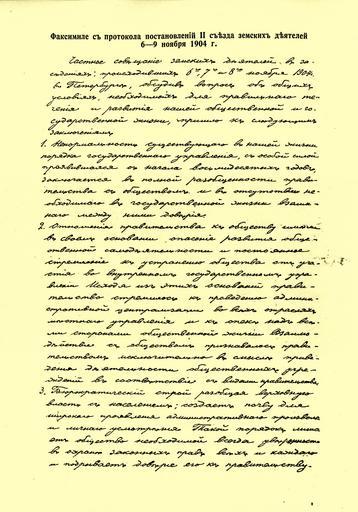 Факсимиле съ протокола постановленiй II съѣзда земскихъ дѣятелей
6—9 ноября 1904 г.
Частное совѣщанiе земскихъ дѣятелей, въ за-
сѣданiяхъ, происходившихъ 6го, 7го и 8го ноября 1904
въ Петербургѣ, обсудивъ вопросъ объ общихъ
условiяхъ, необходимыхъ для правильнаго те-
ченiя и развитiя нашей общественной и го-
сударственной жизни, пришло къ слѣдующимъ
заключенiямъ
1. Ненормальность существующаго въ нашей жизни
порядка государственнаго управленiя, съ особой силой
проявившаяся съ начала восьмидесятыхъ годовъ,
заключается въ полной разобщенности прави-
тельства съ обществомъ и въ отсутствiи не-
обходимаго въ государственной жизни взаим-
наго между ними довѣрiя.
2. Отношенiя правительства къ обществу имѣли
въ своемъ основанiи опасенiе развитiя обще-
ственной самодѣятельности и постоянное
стремленiе къ устраненiю общества отъ уча-
стiя во внутреннемъ государственномъ упра-
вленiи Исходя изъ этихъ основанiй прави-
тельство стремилось къ проведенiю админи-
стративной централизацiи во всѣхъ отрасляхъ
мѣстнаго управленiя и къ опекѣ надъ всѣ-
ми сторонами общественной жизни Взаимо-
дѣйствiе съ обществомъ признавалось прави-
тельствомъ исключительно въ смыслѣ приве-
денiя дѣятельности общественныхъ учре-
жденiй въ соотвѣтствiе съ видами правительства.
3. Бюрократическiй строй разобщая верховную
власть съ населенiемъ, создаетъ почву для
широкаго проявленiя административнаго произвола
и личнаго усмотрѣнiя Такой порядокъ лиша-
етъ общество необходимой всегда увѣренности
въ охранѣ законныхъ правъ всѣхъ и каждаго
и подрываетъ довѣрiе его къ правительству.